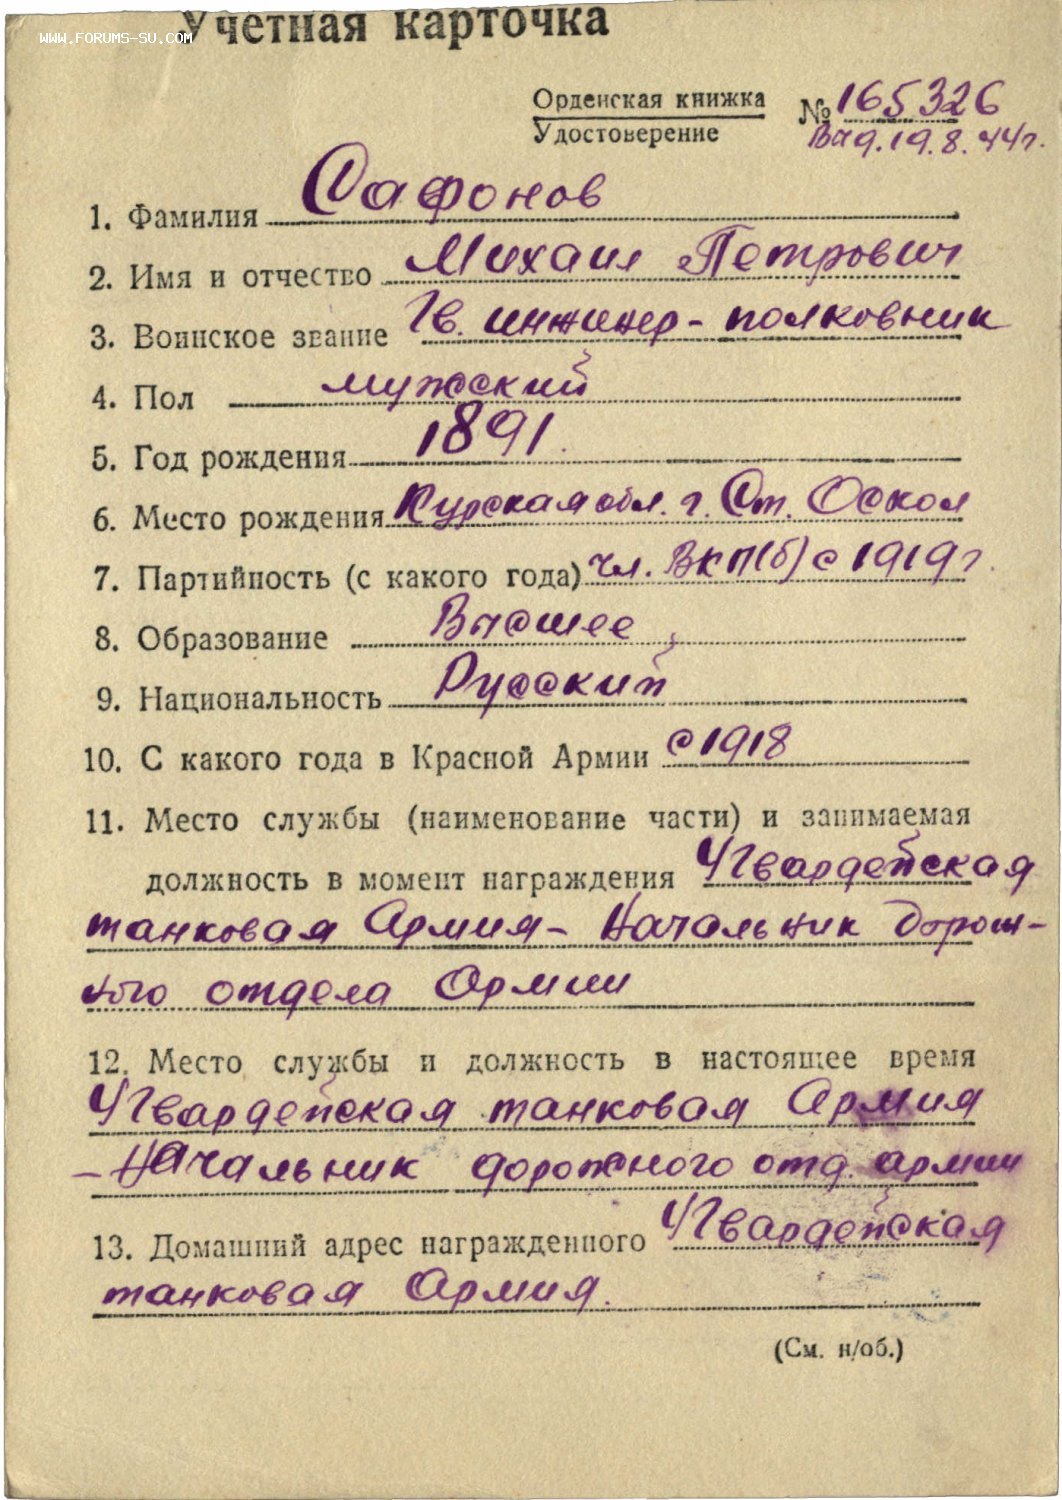 Учетная карточка
WWW.FORUMS-SU.COM
Орденская книжка № 165326
Удостоверение Выд. 19.8.44г.
1. Фамилия Сафонов
2. Имя и отчество Михаил Петрович
3. Воинское звание Гв. инженер-полковник
4. Пол мужской
5. Год рождения 1891.
6. Место рождения Курская обл. г. Ст. Оскол
7. Партийность (с какого года) чл. ВКП(б) с 1919г.
8. Образование Высшее
9. Национальность Русский
10. С какого года в Красной Армии с 1918
11. Место службы (наименование части) и занимаемая
должность в момент награждения 4 Гвардейская
танковая Армия - Начальник дорож-
ного отдела Армии
12. Место службы и должность в настоящее время
4 Гвардейская танковая Армия
- Начальник дорожного отд. армии
13. Домашний адрес награжденного 4 Гвардейская
танковая Армия.
(См. н/об.)